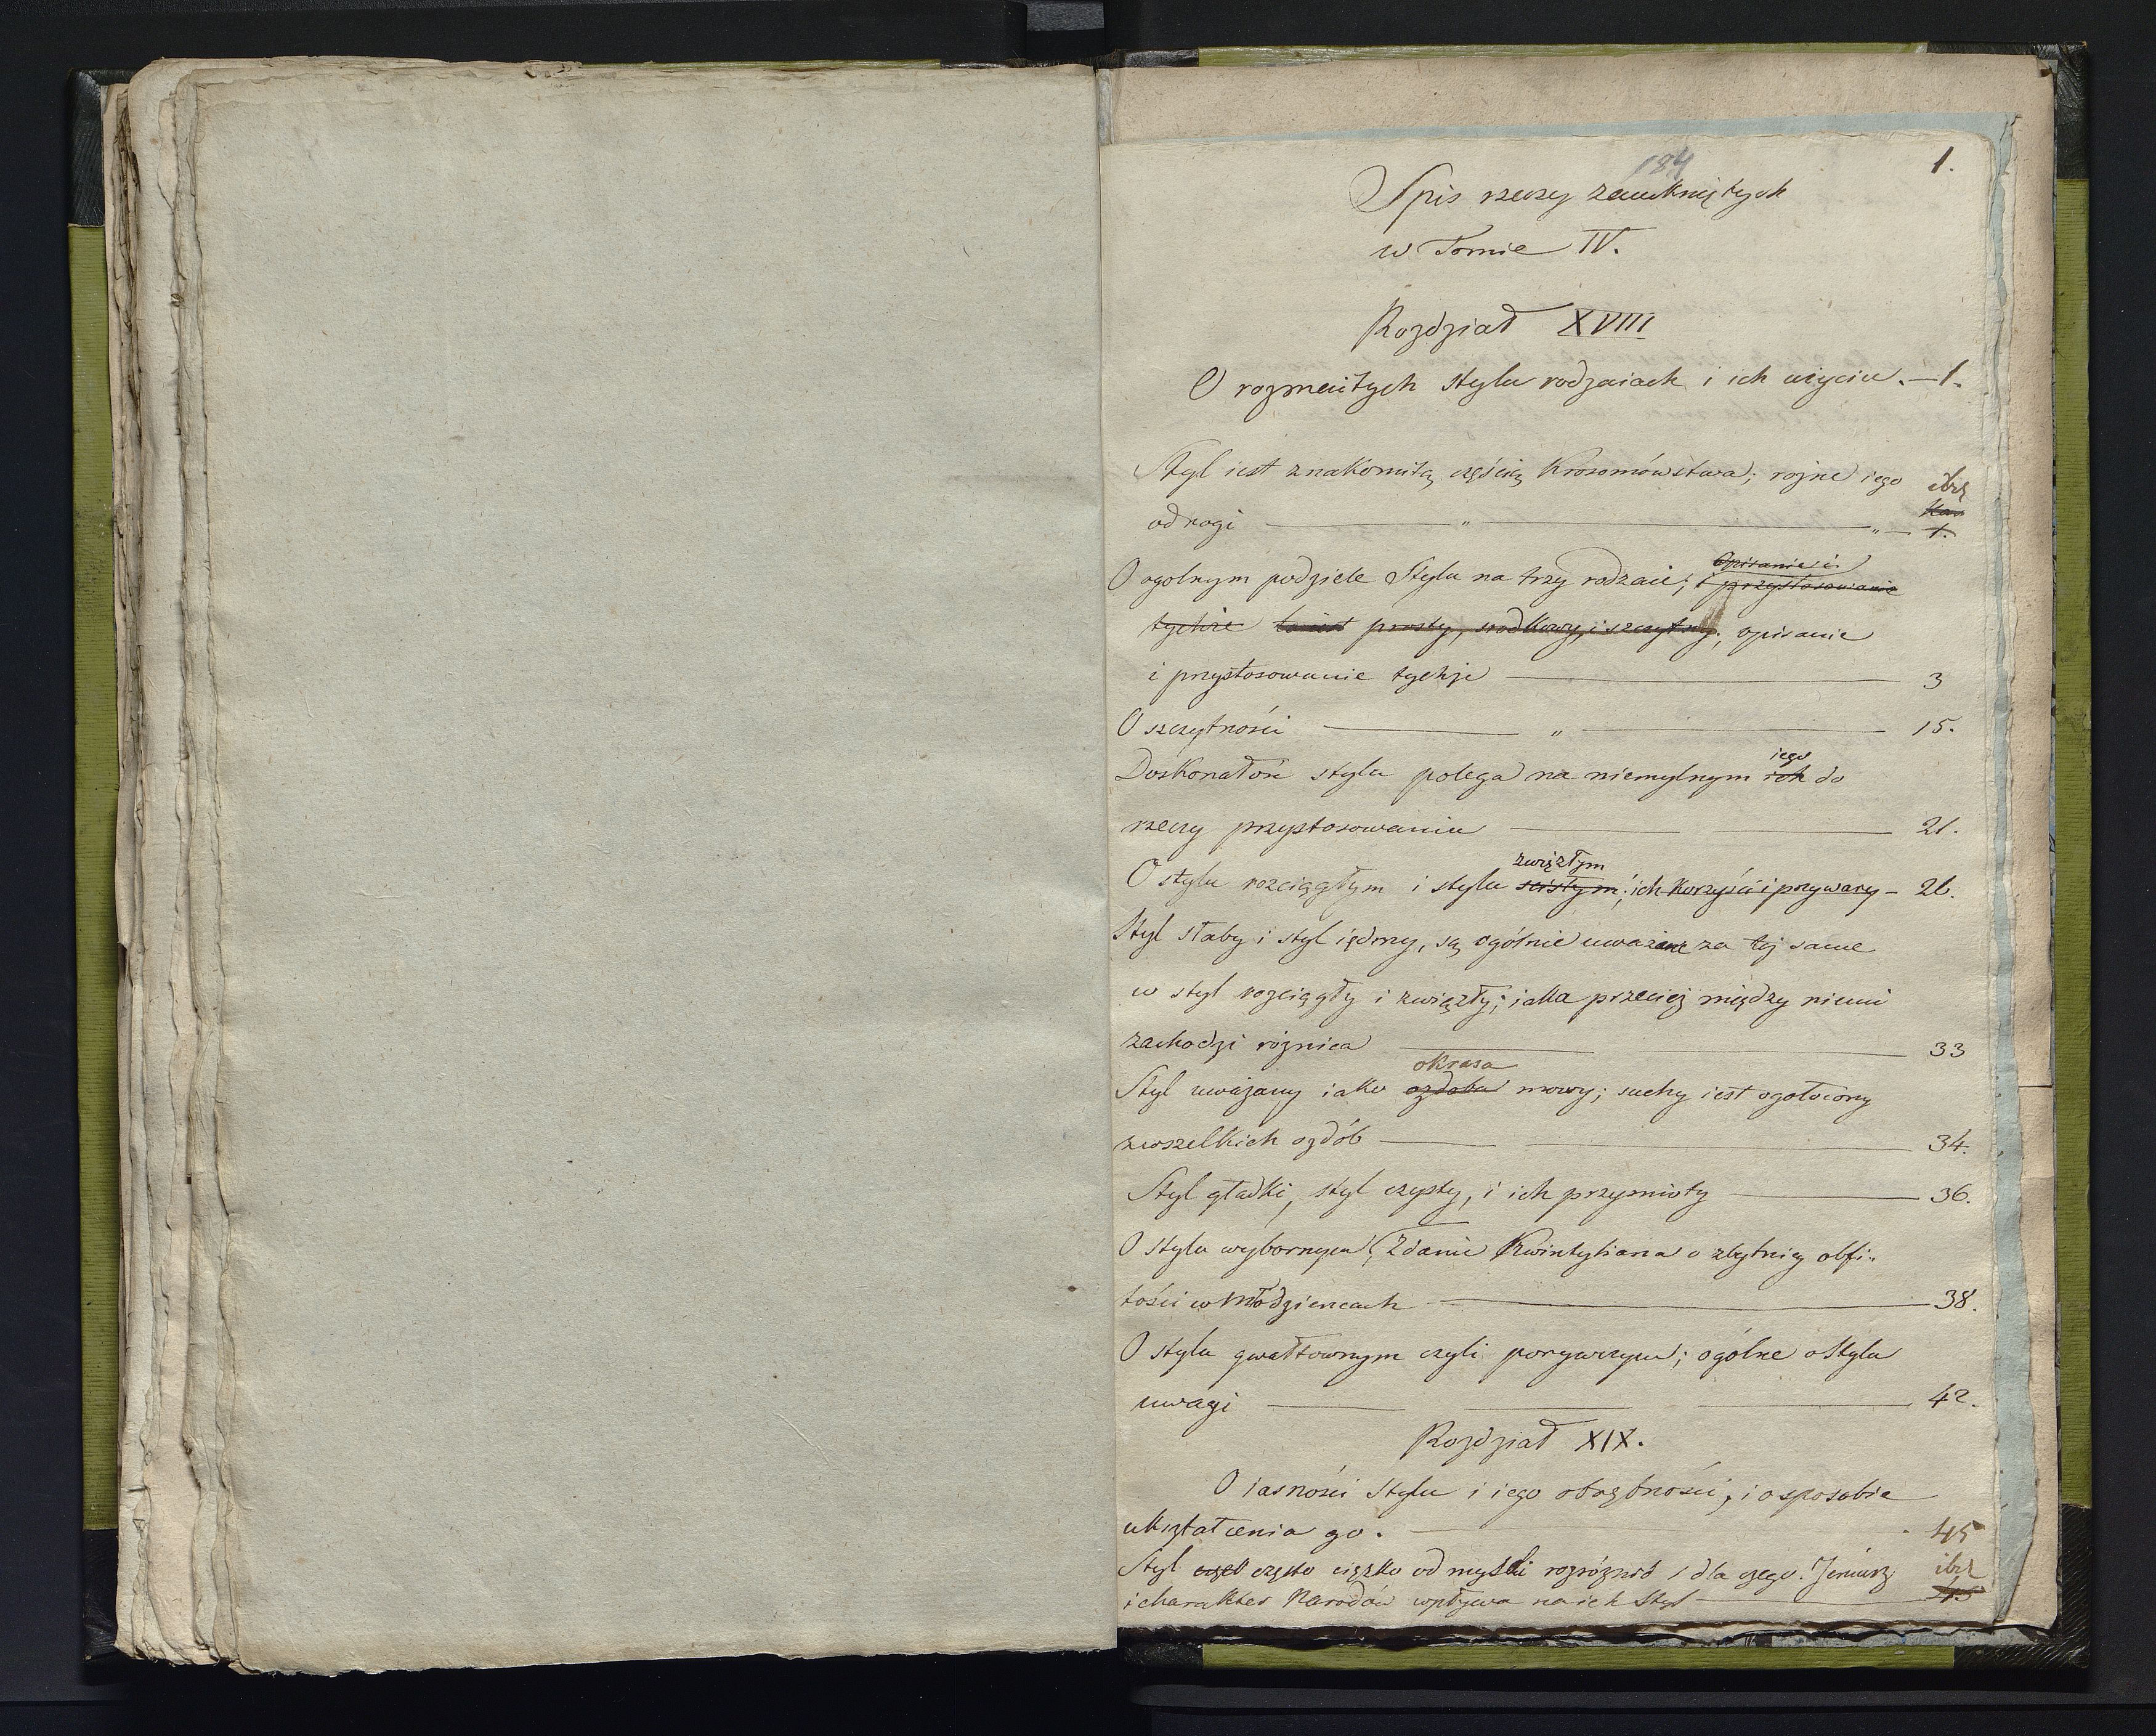 184
1.
Spis rzeczy zamkniętych
w Tomie IV.
Rozdział XVIII
O rozmaitych stylu rodzaiach i ich użyciu. — 1.
Styl iest znakomitą częścią Krasomówstwa; rożne iego
odnogi — " — " — 1.
Opisanie i
O ogolnym podziele Stylu na trzy rodzaie; i przystosowanie
tychże to iest prosty, srodkowy, i szczytny; opisanie
i przystosowanie tychże — 3
O szczytności — " — 15.
iego
Doskonałość stylu polega na niemylnym ich do
rzeczy przystosowaniu — 21.
zwięzłym
O stylu rozciągłym i stylu scisłym; ich korzyści i przywary — 26.
Styl słaby i styl iędrny, są ogólnie uważane za też same
w styl rozciągły i zwięzły; iaka przecież między niemi
zachodzi rożnica — 33
okrasa
Styl uważany iako ozdoba mowy; suchy iest ogołocony
zwszelkich ozdób — 34.
Styl gładki, styl czysty, i ich przymioty — 36.
O stylu wybornym; Zdanie Kwintyliana o zbytniey obfi-
tości w młodzieńcach — 38.
O stylu gwałtownym czyli porywczym; ogólne o Stylu
uwagi — 42.
Rozdział XIX.
O iasności Stylu i iego obrębności, i o sposobie
ukształcenia go. — 45
Styl często ciężko od myśli rozróżnić i dla czego. Jeniusz
i charakter Narodów wpływa na ich Styl — 45